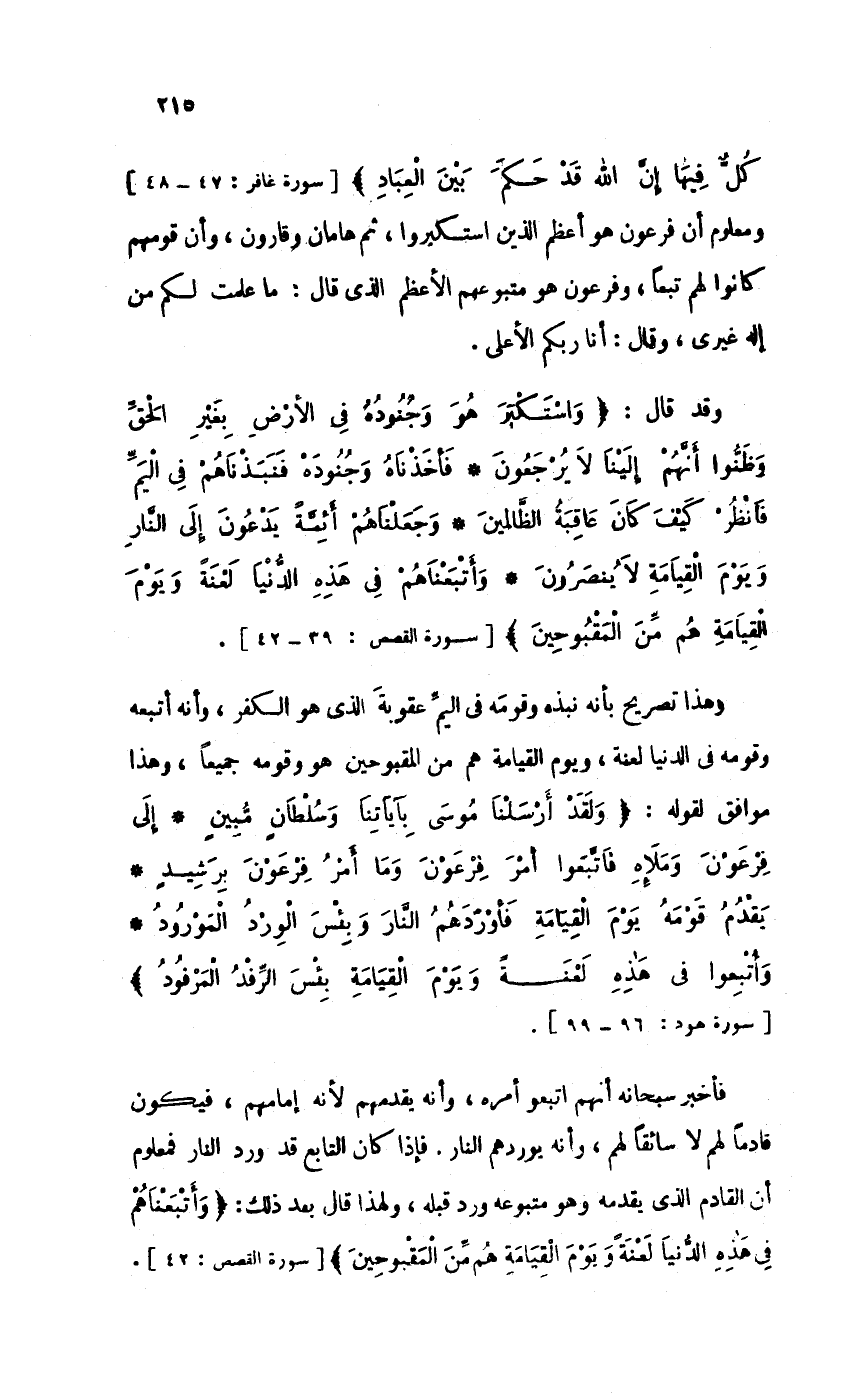 ٢١٥
كُلٌّ فِيهَا إِنَّ اللهَ قَدْ حَكَمَ بَيْنَ الْعِبَادِ ﴾ [ سورة غافر : ٤٧ – ٤٨ ]
ومعلوم أن فرعون هو أعظم الذين استكبروا ، ثم هامان وقارون ، وأن قومهم
كانوا لهم تبعاً ، وفرعون هو متبوعهم الأعظم الذى قال : ما علمت لكم من
إله غيرى ، وقال : أنا ربكم الأعلى .
وقد قال : ﴿ وَاسْتَكْبَرَ هُوَ وَجُنُودُهُ فِى الأرْضِ بِغَيْرِ الْحَقِّ
وَظَنُّوا أَنَّهُمْ إِلَيْنَا لاَ يُرْجَعُونَ * فَأَخَذْنَاهُ وَجُنُودَهُ فَنَبَذْنَاهُمْ فِى الْيَمِّ
فَانْظُرْ كَيْفَ كَانَ عَاقِبَةُ الظَّالمِينَ * وَجَعَلْنَاهُمْ أَئِمَّةً يَدْعُونَ إِلَى النَّارِ
وَيَوْمَ الْقِيَامَةِ لاَ يُنصَرُونَ * وَأَتْبَعْنَاهُمْ فِى هَذِهِ الدُّنْيَا لَعْنَةً وَيَوْمَ
الْقِيَامَةِ هُم مِّنَ الْمَقْبُوحِينَ ﴾ [ سورة القصص : ٣٩ – ٤٢ ] .
وهذا تصريح بأنه نبذه وقومَه فى اليمِّ عقوبةَ الذى هو الكفر ، وأنه أتبعه
وقومه فى الدنيا لعنة ، ويوم القيامة هم من المقبوحين هو وقومه جميعاً ، وهذا
موافق لقوله : ﴿ وَلَقَدْ أَرْسَلْنَا مُوسَى بِآيَاتِنَا وَسُلْطَانٍ مُّبِينٍ * إِلَى
فِرْعَوْنَ وَمَلَإِهِ فَاتَّبَعُوا أَمْرَ فِرْعَوْنَ وَمَا أَمْرُ فِرْعَوْنَ بِرَشِيدٍ *
يَقْدُمُ قَوْمَهُ يَوْمَ الْقِيَامَةِ فَأَوْرَدَهُمُ النَّارَ وَبِئْسَ الْوِرْدُ الْمَوْرُودُ *
وَأُتْبِعوا فى هَذِهِ لَعْنَةً وَيَوْمَ الْقِيَامَةِ بِئْسَ الرِّفْدُ الْمَرْفُودُ ﴾
[ سورة هود : ٩٦ – ٩٩ ] .
فأخبر سبحانه أنهم اتبعو أمره ، وأنه يقدمهم لأنه إمامهم ، فيكون
قادماً لهم لا سائقاً لهم ، وأنه يوردهم النار . فإذا كان التابع قد ورد النار فمعلوم
أن القادم الذى يقدمه وهو متبوعه ورد قبله ، ولهذا قال بعد ذلك : ﴿ وَأَتْبَعْنَاهُمْ
فِى هَذِهِ الدُّنيَا لَعْنَةً وَيَوْمَ الْقِيَامَةِ هُم مِّنَ الْمَقْبوحِينَ ﴾ [ سورة القصص : ٤٢ ] .